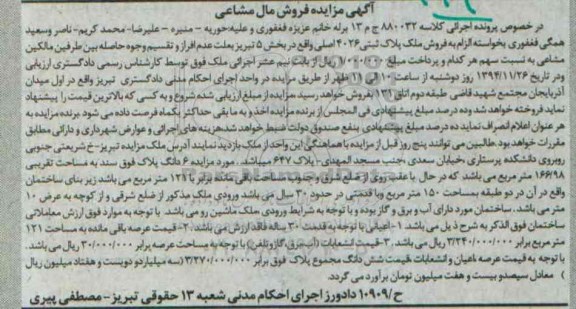 آگهی مزایده فروش مال مشاعی
در خصوص پرونده اجرائی کلاسه ۸۸۰۰۳۲ ج م ۱۳ برله خانم عزیزه فغفوری و علیه حوریه - منیره - علیرضا - محمد کریم - ناصر وسعید
همگی فغفوری بخواسته الزام به فروش ملک پلاک ثبتی ۴۰۲۶ اصلی واقع در بخش ۵ تبریز بعلت عدم افراز و تقسیم وجوه حاصله بین طرفین مالکین
مشاعی به نسبت سهم هر کدام و پرداخت مبلغ ۱/۰۰۰/۰۰۰ ریال از بابت نیم عشر اجرائی ملک فوق توسط کارشناس رسمی دادگستری ارزیابی
ودر تاریخ ۱۳۹۴/۱۱/۲۶ روز دوشنبه از ساعت ۱۰ الی ۱۱ ظهر از طریق مزایده در واحد اجرای احکام مدنی دادگستری تبریز واقع در اول میدان
آذربایجان مجتمع شهید قاضی طبقه دوم اتاق ۱۳۱ بفروش خواهد رسید مزایده از مبلغ ارزیابی شده شروع و به کسی که بالاترین قیمت را پیشنهاد
نماید فروخته خواهد شد وده درصد مبلغ پیشنهادی فی المجلس از برنده مزایده اخذ و به مابقی حداکثر یکماه فرصت داده می شود برنده مزایده به
هر عنوان اعلام انصراف نماید ده درصد مبلغ پیشنهادی بنفع صندوق دولت ضبط خواهد شد هزینه های اجرائی و عوارض شهرداری و دارائی مطابق
مقررات خواهد بود طالبین می توانند پنج روز قبل از مزایده با هماهنگی این واحد از ملک بازدید نمایند آدرس ملک مزایده تبریز - خ شریعتی جنوبی
روبروی دانشکده پرستاری خیابان سعدی جنب مسجد المهدی - پلاک ۶۴۷ میباشد. مورد مزایده ۶ دانگ پلاک فوق سند به مساحت تقریبی
۱۶۶/۹۸ متر مربع می باشد که در حال با عقب روی از ضلع شرق و جنوب مساحت باقی مانده برابر با ۱۲۱ متر مربع می باشد زیر بنای ساختمان
واقع در آن در دو طبقه بمساحت ۱۵۰ متر مربع و با قدمتی در حدود ۳۰ سال می باشد ورودی ملک مذکور از ضلع شرقی و از کوچه به عرض ۱۰
متر می باشد. ساختمان مورد دارای آب و برق و گاز بوده و با توجه به شرایط ورودی ملک ماشین رو می باشد. با توجه به موارد فوق ارزش معاملاتی
ساختمان فوق الذکر به شرح ذیل می باشد ۱- اعیانی با توجه به قدمت ۳۰ ساله فاقد ارزش می باشد. ۲- قیمت عرصه باقی مانده به مساحت ۱۲۱
متر مربع برابر ۳/۲۴۰/۰۰۰/۰۰۰ ریال می باشد. ۳- قیمت انشعابات (آب، برق، گاز و تلفن) با توجه به مساحت عرصه برابر ۳۰/۰۰۰/۰۰۰ ریال می باشد.
با توجه به قیمت عرصه، اعیان و انشعابات قیمت شش دانگ مجموع پلاک فوق برابر ۳/۲۷۰/۰۰۰/۰۰۰ (سه میلیارد و دویست و هفتاد میلیون ریال
) معادل سیصد و بیست و هفت میلیون تومان برآورد می گردد.
ح/۱۰۹۰۹ دادورز اجرای احکام مدنی شعبه ۱۳ حقوقی تبریز - مصطفی پیری